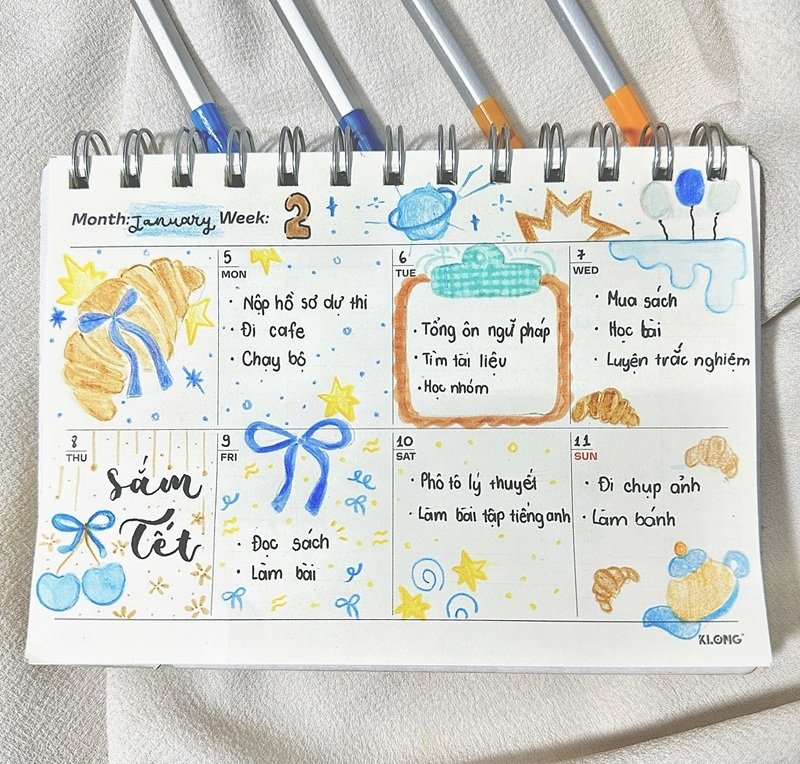 Month: January Week: 2
5
MON
· Nộp hồ sơ dự thi
· Đi cafe
· Chạy bộ
6
TUE
· Tổng ôn ngữ pháp
· Tìm tài liệu
· Học nhóm
7
WED
· Mua sách
· Học bài
· Luyện trắc nghiệm
8
THU
sắm
Tết
9
FRI
· Đọc sách
· Làm bài
10
SAT
· Phô tô lý thuyết
· Làm bài tập tiếng anh
11
SUN
· Đi chụp ảnh
· Làm bánh
KLONG